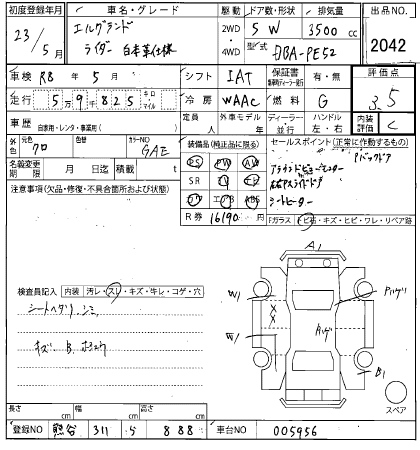 初度登録年月 車名・グレード 駆動 ドア数・形状 排気量 出品NO.
23/5月 エルグランド 2WD・4WD 5 W 3500cc 2042
ライダー 白本革仕様 型式 DBA-PE52
車検 R8年5月 シフト IAT 保証書 有・無 評価点
走行 5万9千825キロ マイル 冷房 WAAC 燃料 G 3.5
車歴 自家用・レンタ・事業用( ) 定員 人 外車モデル 年 ディーラー・並行 ハンドル 左・右 内装評価 C
外色 元色 クロ 色替 カラーNO GAE
名義変更期限 月 日迄 積載 t
装備品(純正品に限る) セールスポイント(正常に作動するもの)
PS PW AW Pバックドア
アラウンドビューモニター
SR
シートヒーター
エアB ABS
R券 16190円
注意事項(欠品・修復・不具合箇所および状態)
Fガラス トビ石・キズ・ヒビ・ワレ・リペア跡
検査員記入 内装 汚レ・スレ・キズ・キレ・コゲ・穴
シートヘタリ、シミ
A1
W1
W1
Pハゲ
Aハゲ
B1
スペア
長さ cm 幅 cm 高さ cm
登録NO 熊谷 311 ら 888 車台NO 005956